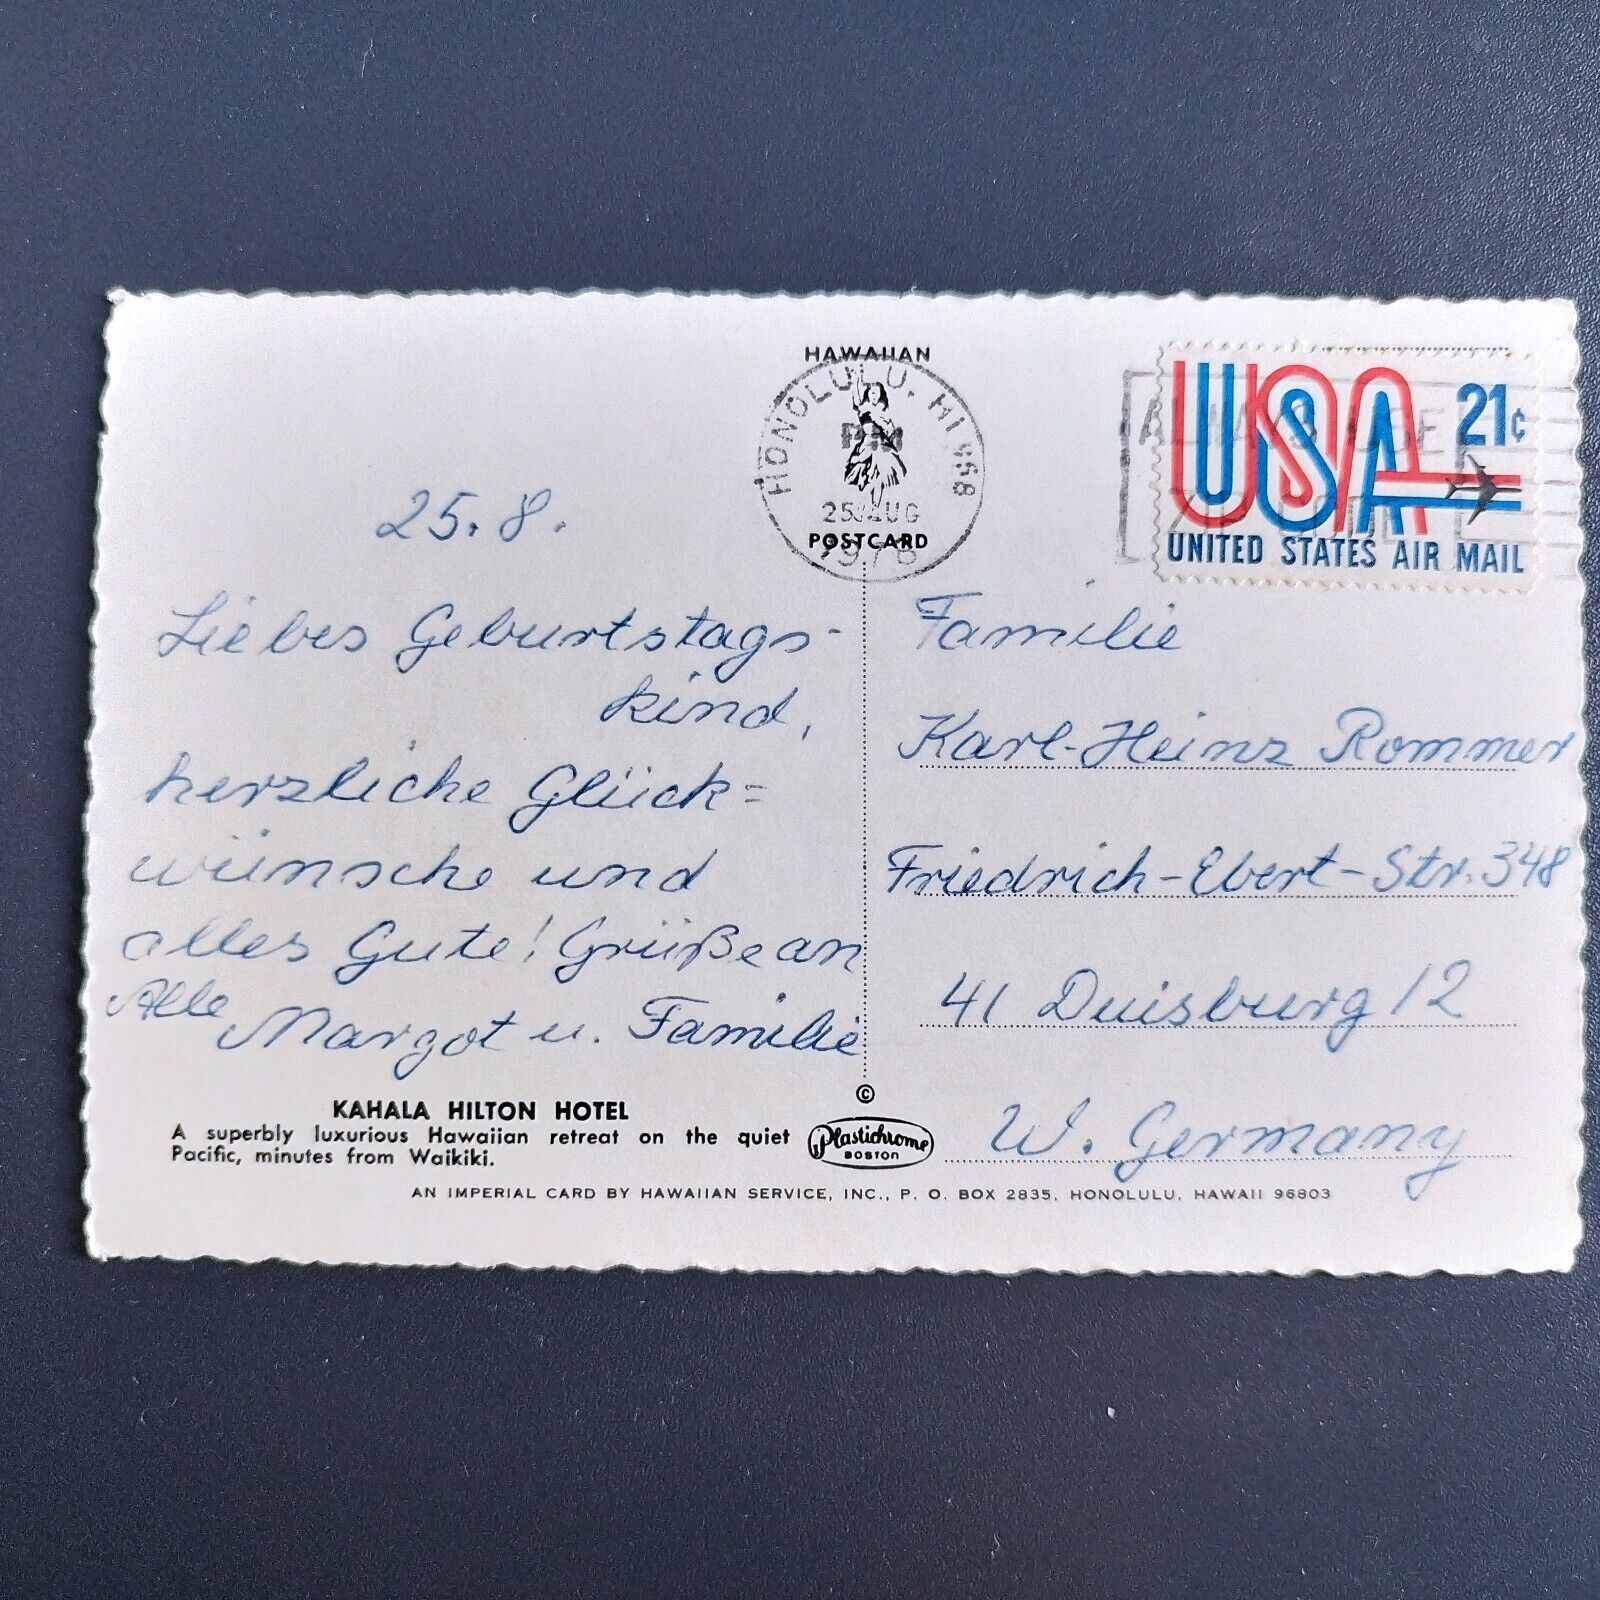 25.8.
Liebes Geburtstags-
kind,
herzliche Glück=
wünsche und
alles Gute! Grüße an
Alle
Margot u. Familie
KAHALA HILTON HOTEL
A superbly luxurious Hawaiian retreat on the quiet
Pacific, minutes from Waikiki.
HAWAIIAN
POSTCARD
HONOLULU, HI. 968
PM
25 AUG
©
Plastichrome
BOSTON
USA 21¢
UNITED STATES AIR MAIL
ALWAYS USE
ZIP CODE
Familie
Karl-Heinz Rommer
Friedrich-Ebert-Str. 348
41 Duisburg 12
W. Germany
AN IMPERIAL CARD BY HAWAIIAN SERVICE, INC., P. O. BOX 2835, HONOLULU, HAWAII 96803